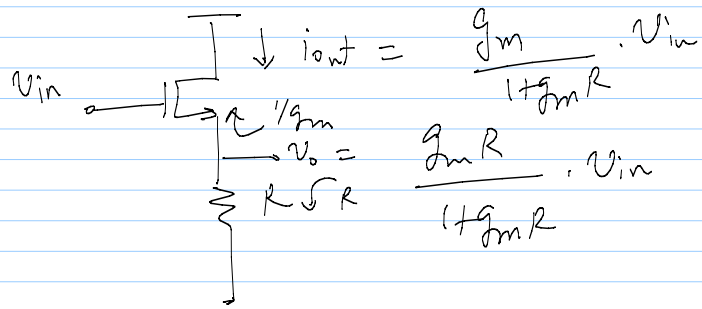 i_out = g_m / (1+g_m R) · v_in
v_in
1/g_m
v_o = g_m R / (1+g_m R) · v_in
R R